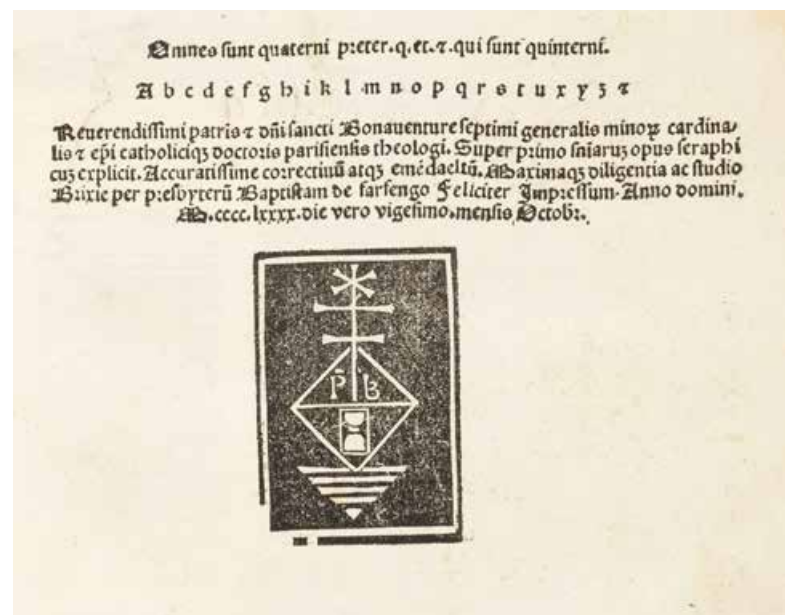 Omnes sunt quaterni preter.q.et.⁊ qui sunt quinterni.
A b c d e f g h i k l m n o p q r s t u x y z ⁊
Reuerendissimi patris ⁊ dn̄i sancti Bonauenture septimi generalis minoꝝ cardina⸗
lis ⁊ ep̄i catholiciqꝫ doctoris parisiensis theologi. Super primo sniaruꝫ opus seraphi
cuꝫ explicit. Accuratissime correctinū atqꝫ emēdaeltū. Maximaqꝫ diligentia ac studio
Brixie per presbyterū Baptistam de farfengo Feliciter Impressum. Anno domini.
M.cccc.lxxxx.die vero vigesimo.mensis Octobr̄.
P̄ b